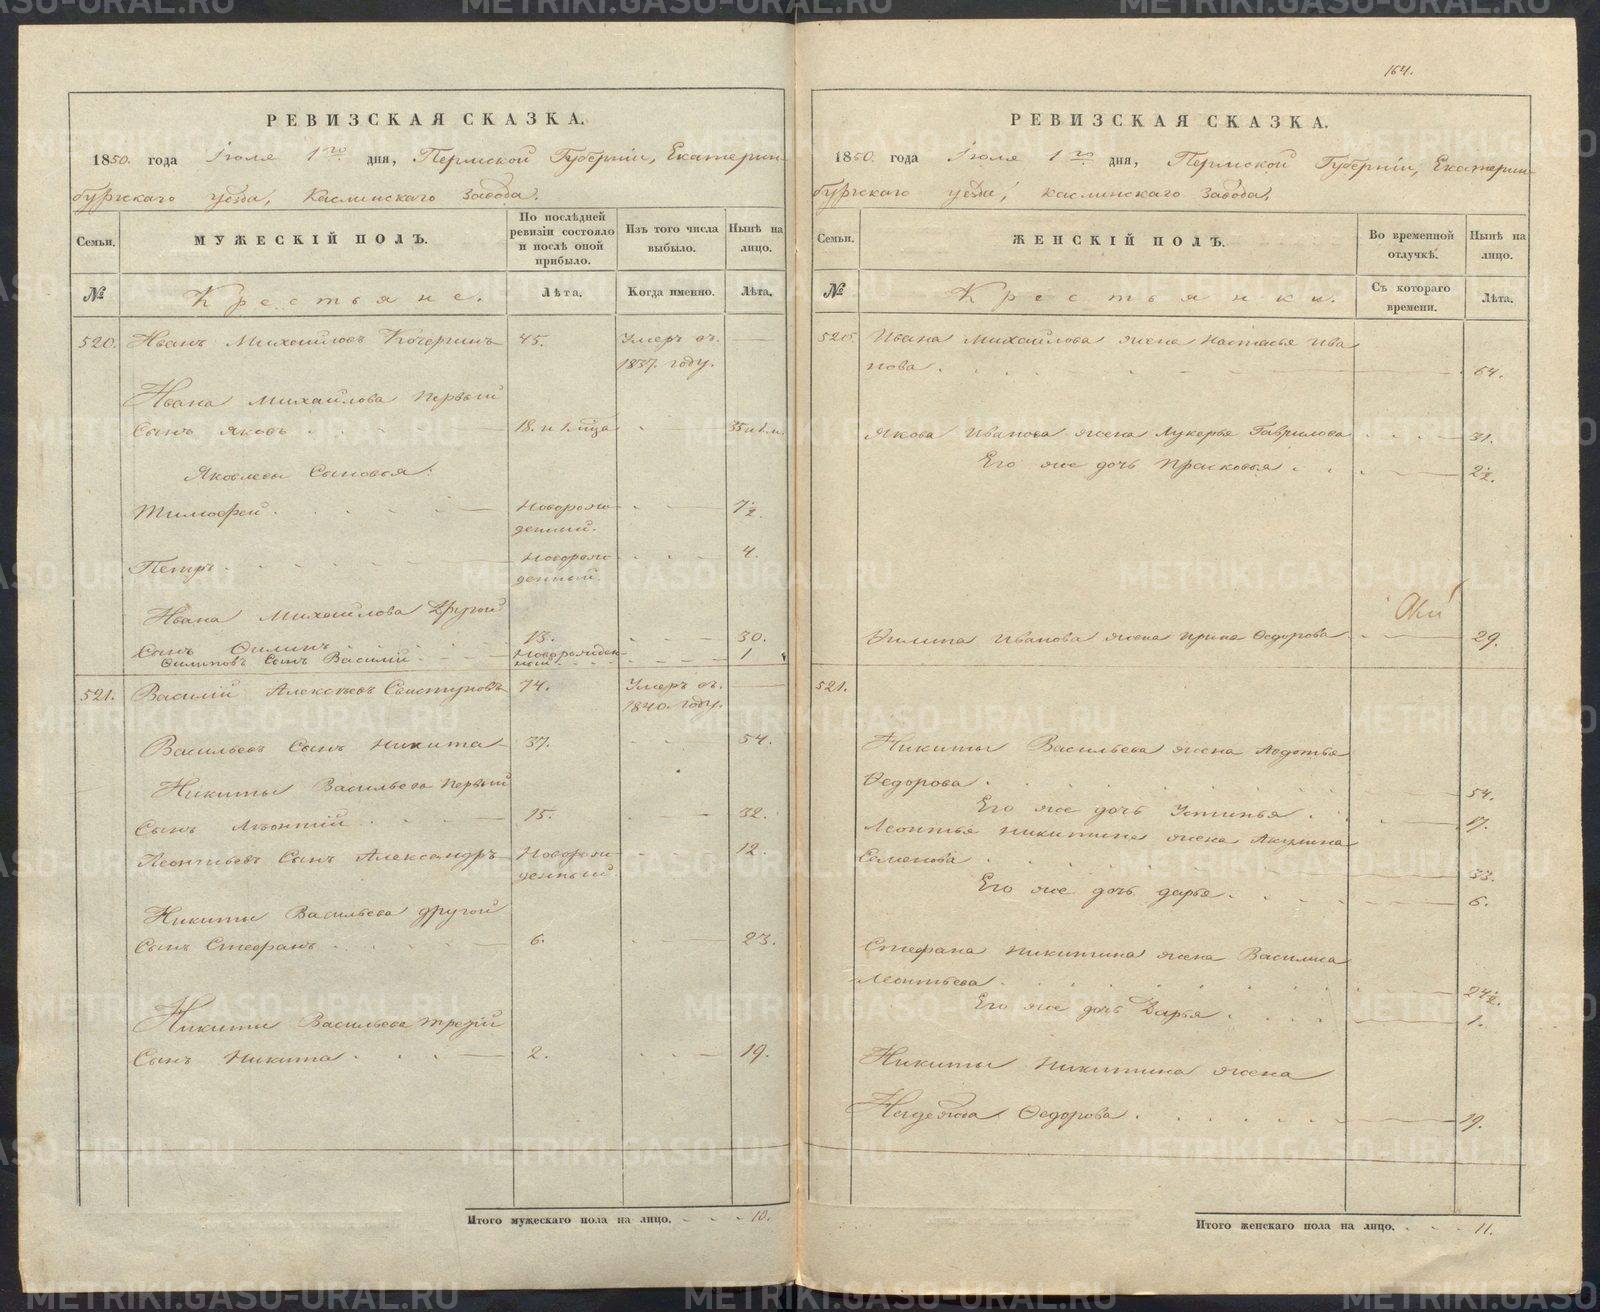 164.
РЕВИЗСКАЯ СКАЗКА.
1850. года Іюля 1го дня, Пермской Губерніи, Екатерин-
бургскаго уезда, Каслинскаго Завода.
Семьи. МУЖЕСКІЙ ПОЛЪ. По послѣдней ревизіи состояло и послѣ оной прибыло. Изъ того числа выбыло. Нынѣ на лицо.
№ Крестьяне. Лѣта. Когда именно. Лѣта.
520. Иванъ Михайловъ Кочергинъ 45. Умеръ въ
1837. году.
Ивана Михайлова Первый
Сынъ Яковъ 18. и 1. м-ца 35 и 1. м.
Яковлевы Сыновья:
Тимофей Новорож- 7½.
денный.
Петръ Новорож- 4.
денный.
Ивана Михайлова Другой
Сынъ Филипъ 13. 30.
Филиповъ Сынъ Василій Новорожден- 1
ный
521. Василій Алексѣевъ Свистуновъ 74. Умеръ въ
1840. году.
Васильевъ Сынъ Никита 37. 54.
Никиты Васильева Первый
Сынъ Леонтій 15. 32.
Леонтьевъ Сынъ Александръ Новорож- 12.
денный.
Никиты Васильева другой
Сынъ Стефанъ 6. 23.
Никиты Васильева третій
Сынъ Никита 2. 19.
Итого мужескаго пола на лицо. 10.
РЕВИЗСКАЯ СКАЗКА.
1850. года Іюля 1го дня, Пермской Губерніи, Екатерин-
бургскаго уезда, Каслинскаго Завода.
Семьи. ЖЕНСКІЙ ПОЛЪ. Во временной отлучкѣ. Нынѣ на лицо.
№ Крестьянки. Съ котораго времени. Лѣта.
520. Ивана Михайлова жена Настасья Ива
нова 64.
Якова Иванова жена Лукерья Гаврилова 31.
Его же дочь Прасковья 2½.
Филипа Иванова жена Ирина Федорова 29.
521.
Никиты Васильева жена Авдотья
Федорова 54.
Его же дочь Устинья 17.
Леонтья Никитина жена Акулина
Семенова 33.
Его же дочь Дарья 6.
Стефана Никитина жена Василиса
Леонтьева 24½.
Его же дочь Дарья 1.
Никиты Никитина жена
Надежда Федорова 19.
Итого женскаго пола на лицо. 11.
METRIKI.GASO-URAL.RU